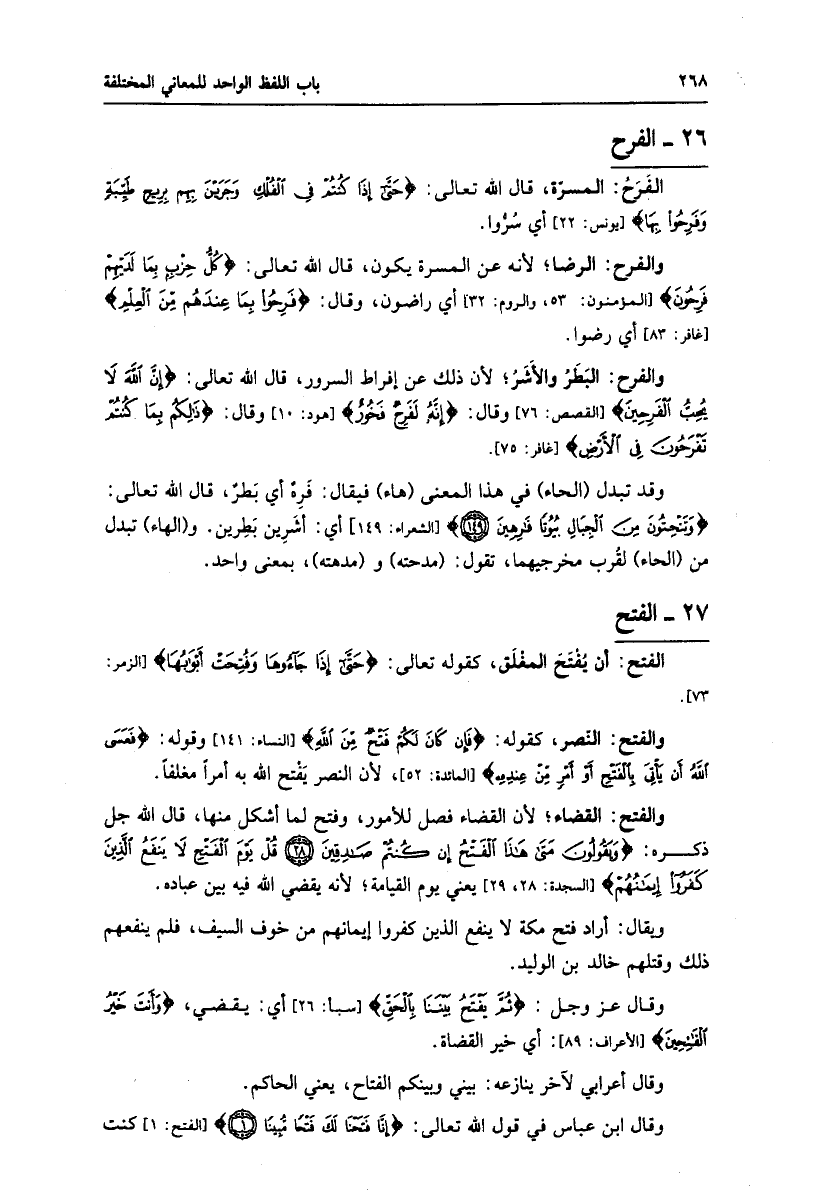 ٢٦٨ باب اللفظ الواحد للمعاني المختلفة
٢٦ ـ الفرح
الفَرَحُ: المسرّة، قال الله تعالى: ﴿حَتَّىٰٓ إِذَا كُنتُمْ فِى ٱلْفُلْكِ وَجَرَيْنَ بِهِم بِرِيحٍ طَيِّبَةٍ
وَفَرِحُوا۟ بِهَا﴾ [يونس: ٢٢] أي سُرُّوا.
والفرح: الرضا؛ لأنه عن المسرة يكون، قال الله تعالى: ﴿كُلُّ حِزْبٍۭ بِمَا لَدَيْهِمْ
فَرِحُونَ﴾ [المؤمنون: ٥٣، والروم: ٣٢] أي راضون، وقال: ﴿فَرِحُوا۟ بِمَا عِندَهُم مِّنَ ٱلْعِلْمِ﴾
[غافر: ٨٣] أي رضوا.
والفرح: البَطَرُ والأَشَرُ؛ لأن ذلك عن إفراط السرور، قال الله تعالى: ﴿إِنَّ ٱللَّهَ لَا
يُحِبُّ ٱلْفَرِحِينَ﴾ [القصص: ٧٦] وقال: ﴿إِنَّهُۥ لَفَرِحٌ فَخُورٌ﴾ [هود: ١٠] وقال: ﴿ذَٰلِكُم بِمَا كُنتُمْ
تَفْرَحُونَ فِى ٱلْأَرْضِ﴾ [غافر: ٧٥].
وقد تبدل (الحاء) في هذا المعنى (هاء) فيقال: فَرِهٌ أي بَطرٌ، قال الله تعالى:
﴿وَتَنْحِتُونَ مِنَ ٱلْجِبَالِ بُيُوتًا فَٰرِهِينَ ١٤٩﴾ [الشعراء: ١٤٩] أي: أشَرِين بَطِرين. و(الهاء) تبدل
من (الحاء) لقُرب مخرجيهما، تقول: (مدحته) و (مدهته)، بمعنى واحد.
٢٧ ـ الفتح
الفتح: أن يُفْتَحَ المغْلَق، كقوله تعالى: ﴿حَتَّىٰٓ إِذَا جَآءُوهَا وَفُتِحَتْ أَبْوَٰبُهَا﴾ [الزمر:
٧٣].
والفتح: النّصر، كقوله: ﴿فَإِن كَانَ لَكُمْ فَتْحٌ مِّنَ ٱللَّهِ﴾ [النساء: ١٤١] وقوله: ﴿فَعَسَى
ٱللَّهُ أَن يَأْتِىَ بِٱلْفَتْحِ أَوْ أَمْرٍ مِّنْ عِندِهِۦ﴾ [المائدة: ٥٢]، لأن النصر يَفْتح الله به أمراً مغلقاً.
والفتح: القضاء؛ لأن القضاء فصل للأمور، وفتح لما أشكل منها، قال الله جل
ذكره: ﴿وَيَقُولُونَ مَتَىٰ هَٰذَا ٱلْفَتْحُ إِن كُنتُمْ صَٰدِقِينَ ٢٨ قُلْ يَوْمَ ٱلْفَتْحِ لَا يَنفَعُ ٱلَّذِينَ
كَفَرُوٓا۟ إِيمَٰنُهُمْ﴾ [السجدة: ٢٨، ٢٩] يعني يوم القيامة؛ لأنه يقضي الله فيه بين عباده.
ويقال: أراد فتح مكة لا ينفع الذين كفروا إيمانهم من خوف السيف، فلم ينفعهم
ذلك وقتلهم خالد بن الوليد.
وقال عز وجل : ﴿ثُمَّ يَفْتَحُ بَيْنَنَا بِٱلْحَقِّ﴾ [سبا: ٢٦] أي: يقضي، ﴿وَأَنتَ خَيْرُ
ٱلْفَٰتِحِينَ﴾ [الأعراف: ٨٩]: أي خير القضاة.
وقال أعرابي لآخر ينازعه: بيني وبينكم الفتاح، يعني الحاكم.
وقال ابن عباس في قول الله تعالى: ﴿إِنَّا فَتَحْنَا لَكَ فَتْحًا مُّبِينًا ١﴾ [الفتح: ١] كنت